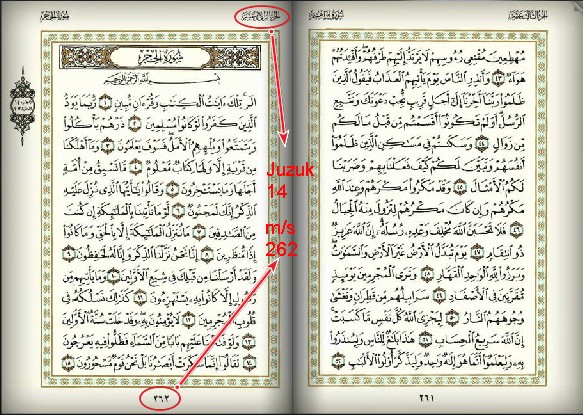 الجزء الثالث عشر
سورة إبراهيم
مهطعين مقنعي رءوسهم لا يرتد إليهم طرفهم وأفئدتهم
هواء ٤٣ وأنذر الناس يوم يأتيهم العذاب فيقول الذين
ظلموا ربنا أخرنا إلى أجل قريب نجب دعوتك ونتبع
الرسل أولم تكونوا أقسمتم من قبل ما لكم
من زوال ٤٤ وسكنتم في مسكن الذين ظلموا
أنفسهم وتبين لكم كيف فعلنا بهم وضربنا
لكم الأمثال ٤٥ وقد مكروا مكرهم وعند الله
مكرهم وإن كان مكرهم لتزول منه الجبال
٤٦ فلا تحسبن الله مخلف وعده رسله إن الله عزيز
ذو انتقام ٤٧ يوم تبدل الأرض غير الأرض والسموت
وبرزوا لله الوحد القهار ٤٨ وترى المجرمين يومئذ
مقرنين في الأصفاد ٤٩ سرابيلهم من قطران وتغشى
وجوههم النار ٥٠ ليجزي الله كل نفس ما كسبت
إن الله سريع الحساب ٥١ هذا بلغ للناس ولينذروا
به وليعلموا أنما هو إله وحد وليذكر أولوا الألبب ٥٢
٢٦١
الجزء الرابع عشر
سورة الحجر
سورة الحجر
بسم الله الرحمن الرحيم
الر تلك ءايت الكتب وقرءان مبين ١ ربما يود
الذين كفروا لو كانوا مسلمين ٢ ذرهم يأكلوا
ويتمتعوا ويلههم الأمل فسوف يعلمون ٣ وما أهلكنا
من قرية إلا ولها كتاب معلوم ٤ ما تسبق من أمة
أجلها وما يستءخرون ٥ وقالوا يأيها الذي نزل عليه
الذكر إنك لمجنون ٦ لو ما تأتينا بالملئكة إن كنت
من الصدقين ٧ ما ننزل الملئكة إلا بالحق وما كانوا
إذا منظرين ٨ إنا نحن نزلنا الذكر وإنا له لحفظون ٩
ولقد أرسلنا من قبلك في شيع الأولين ١٠ وما يأتيهم من
رسول إلا كانوا به يستهزءون ١١ كذلك نسلكه في
قلوب المجرمين ١٢ لا يؤمنون به وقد خلت سنة الأولين
١٣ ولو فتحنا عليهم بابا من السماء فظلوا فيه يعرجون
١٤ لقالوا إنما سكرت أبصرنا بل نحن قوم مسحورون ١٥
٢٦٢
Juzuk
14
m/s
262